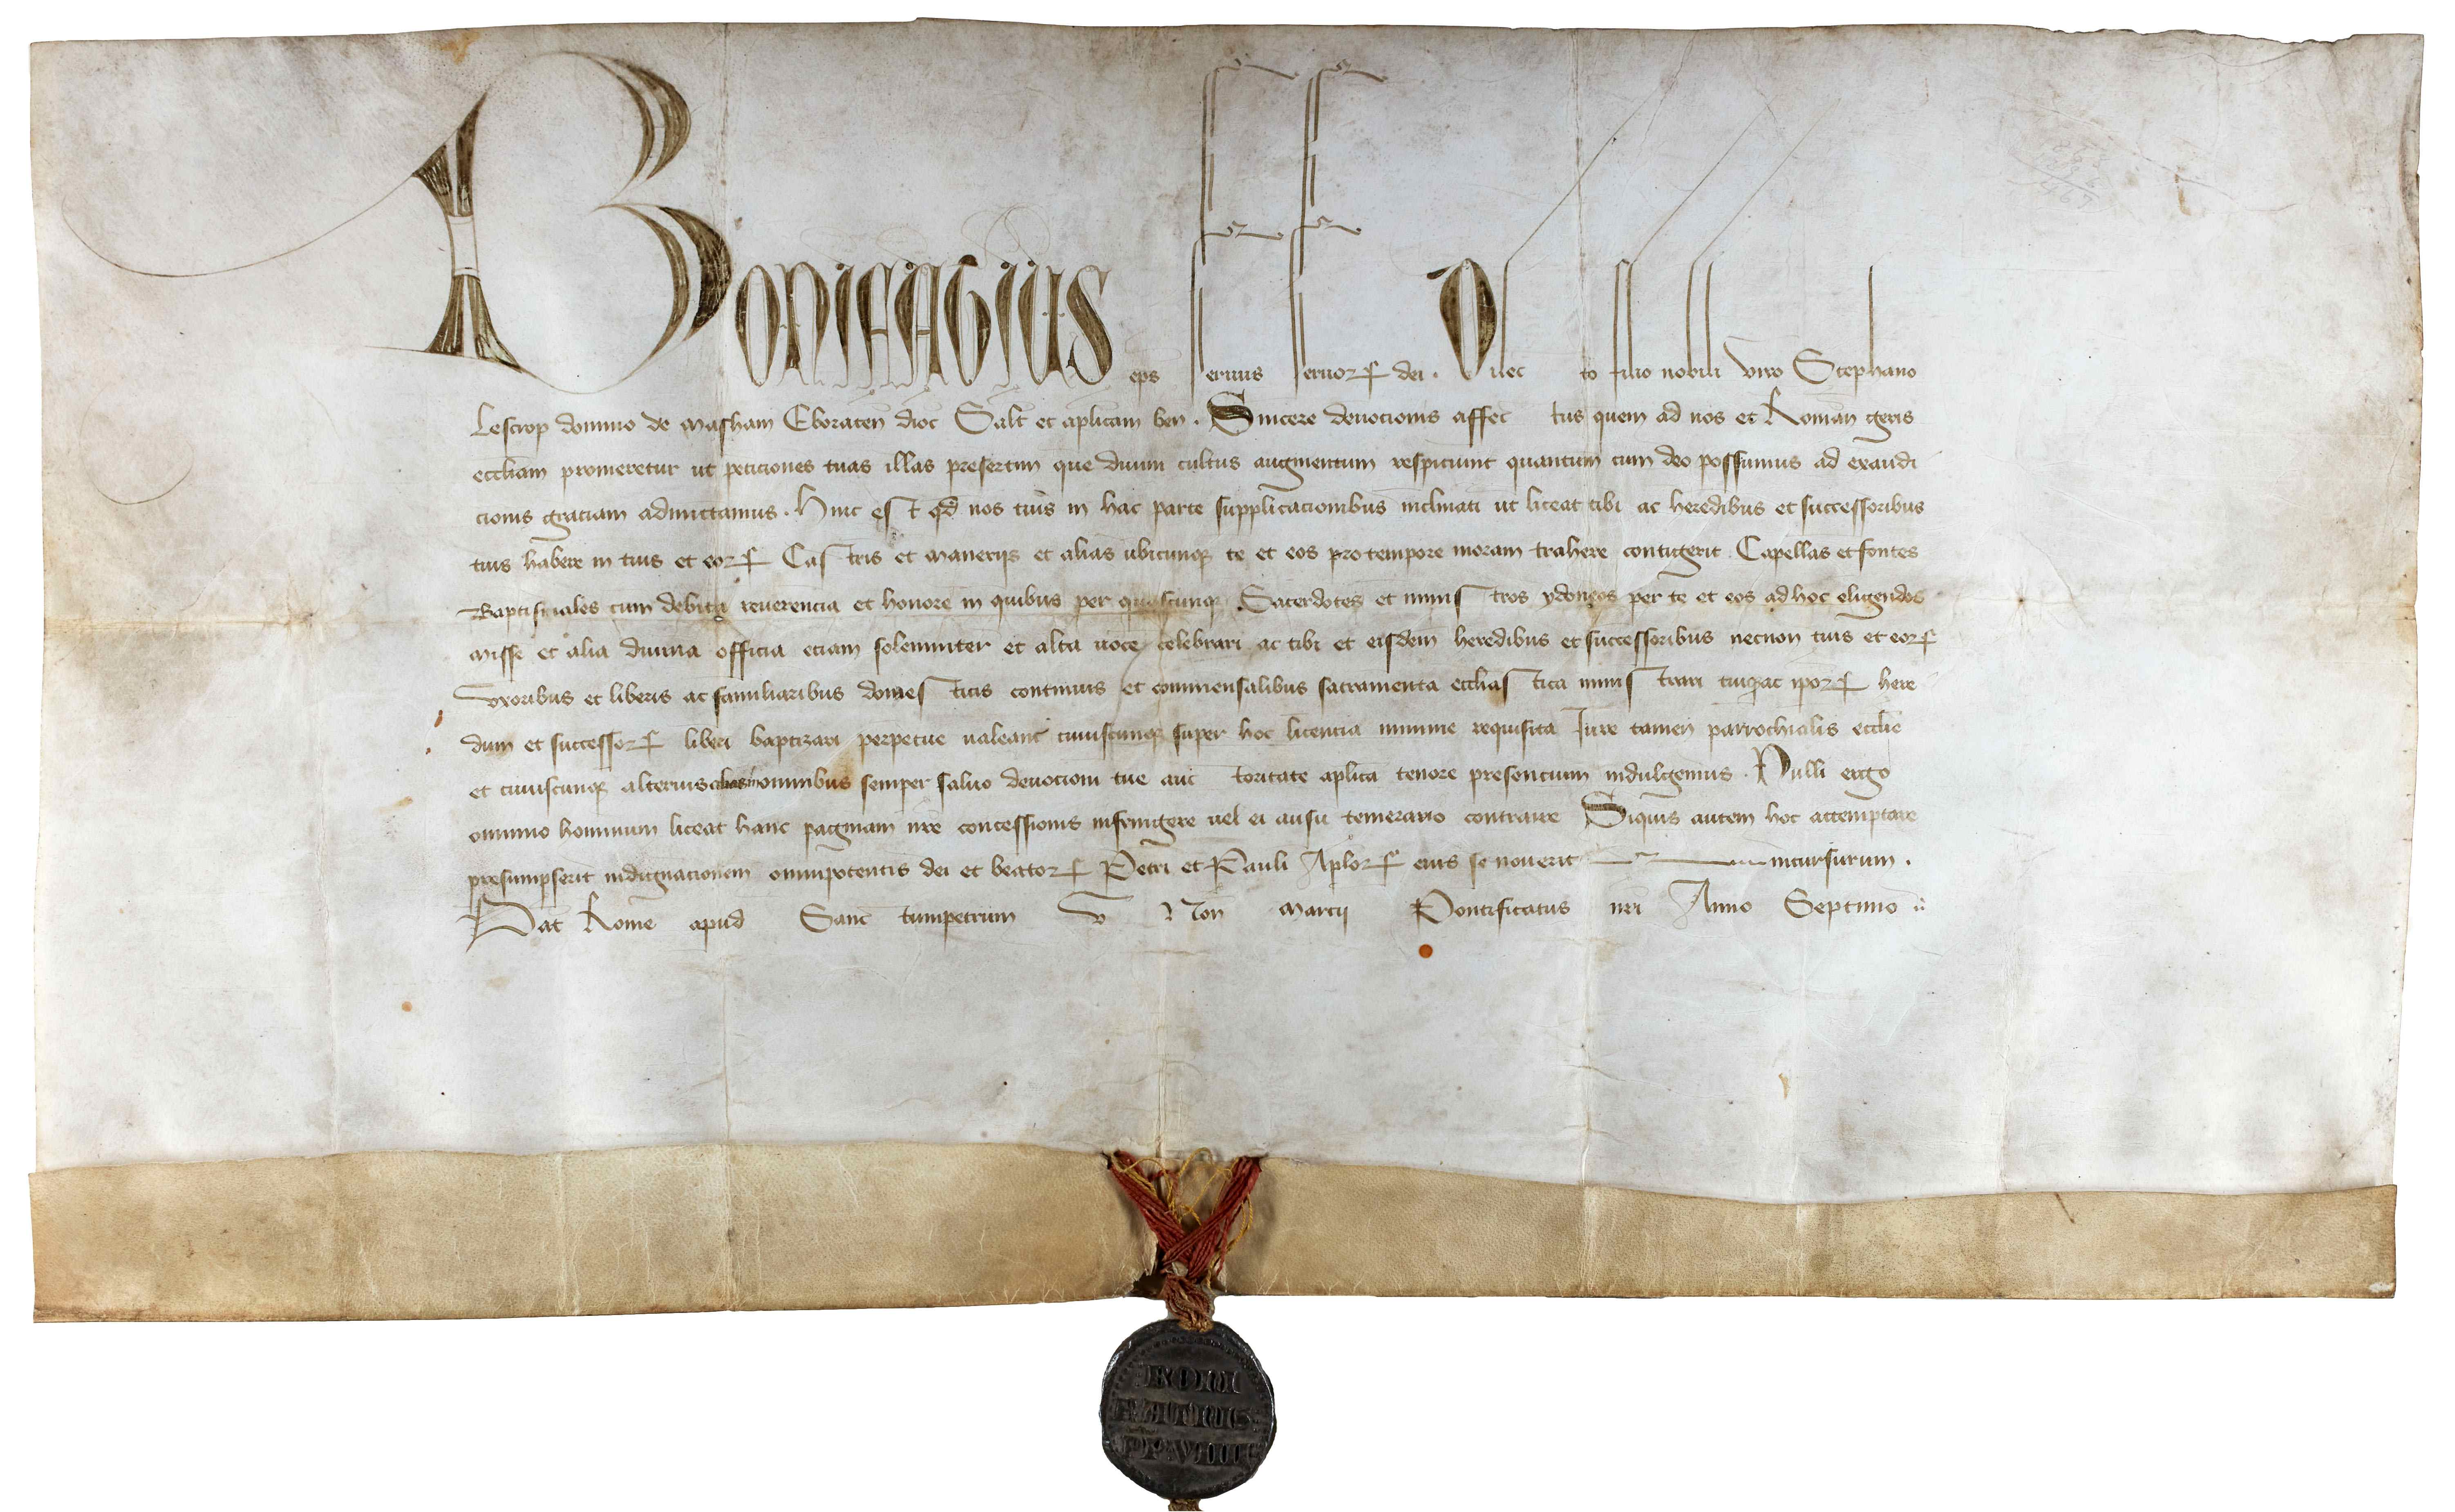 Bonifacius eps seruus seruoꝝ dei. Dilecto filio nobili viro Stephano
Lescrop domino de Masham Eboracen dioc Salt et aplicam ben. Sincere deuocionis affectus quem ad nos et Roman geris
eccliam promeretur ut peticiones tuas illas presertim que diuini cultus augmentum respiciunt quantum cum deo possumus ad exaudi
cionis graciam admittamus. Hinc est qd nos tuis in hac parte supplicacionibus inclinati ut liceat tibi ac heredibus et successoribus
tuis habere in tuis et eoꝝ Castris et Manerijs et alias ubicunqꝫ te et eos pro tempore moram trahere contigerit Capellas et fontes
Baptismales cum debita reuerencia et honore in quibus per quoscunqꝫ Sacerdotes et ministros ydoneos per te et eos ad hoc eligendos
Misse et alia diuina officia eciam solenniter et alta uoce celebrari ac tibi et eisdem heredibus et successoribus necnon tuis et eoꝝ
vxoribus et liberis ac familiaribus domesticis continuis et commensalibus sacramenta ecclastica ministrari tuiqꝫ ac ipoꝝ here
dum et successoꝝ liberi baptizari perpetue ualeant cuiuscunqꝫ super hoc licencia minime requisita Iure tamen parrochialis ecclie
et cuiuscunqꝫ alterius alias in omnibus semper saluo deuocioni tue auctoritate aplica tenore presencium indulgemus. Nulli ergo
omnino hominum liceat hanc paginam nre concessionis infringere uel ei ausu temerario contraire Siquis autem hoc attemptare
presumpserit indignacionem omnipotentis dei et beatoꝝ Petri et Pauli Aploꝝ eius se nouerit incursurum.
Dat Rome apud Sanctumpetrum v Non Marcij Pontificatus nri Anno Septimo
BONI
FATIUS
PP VIIII